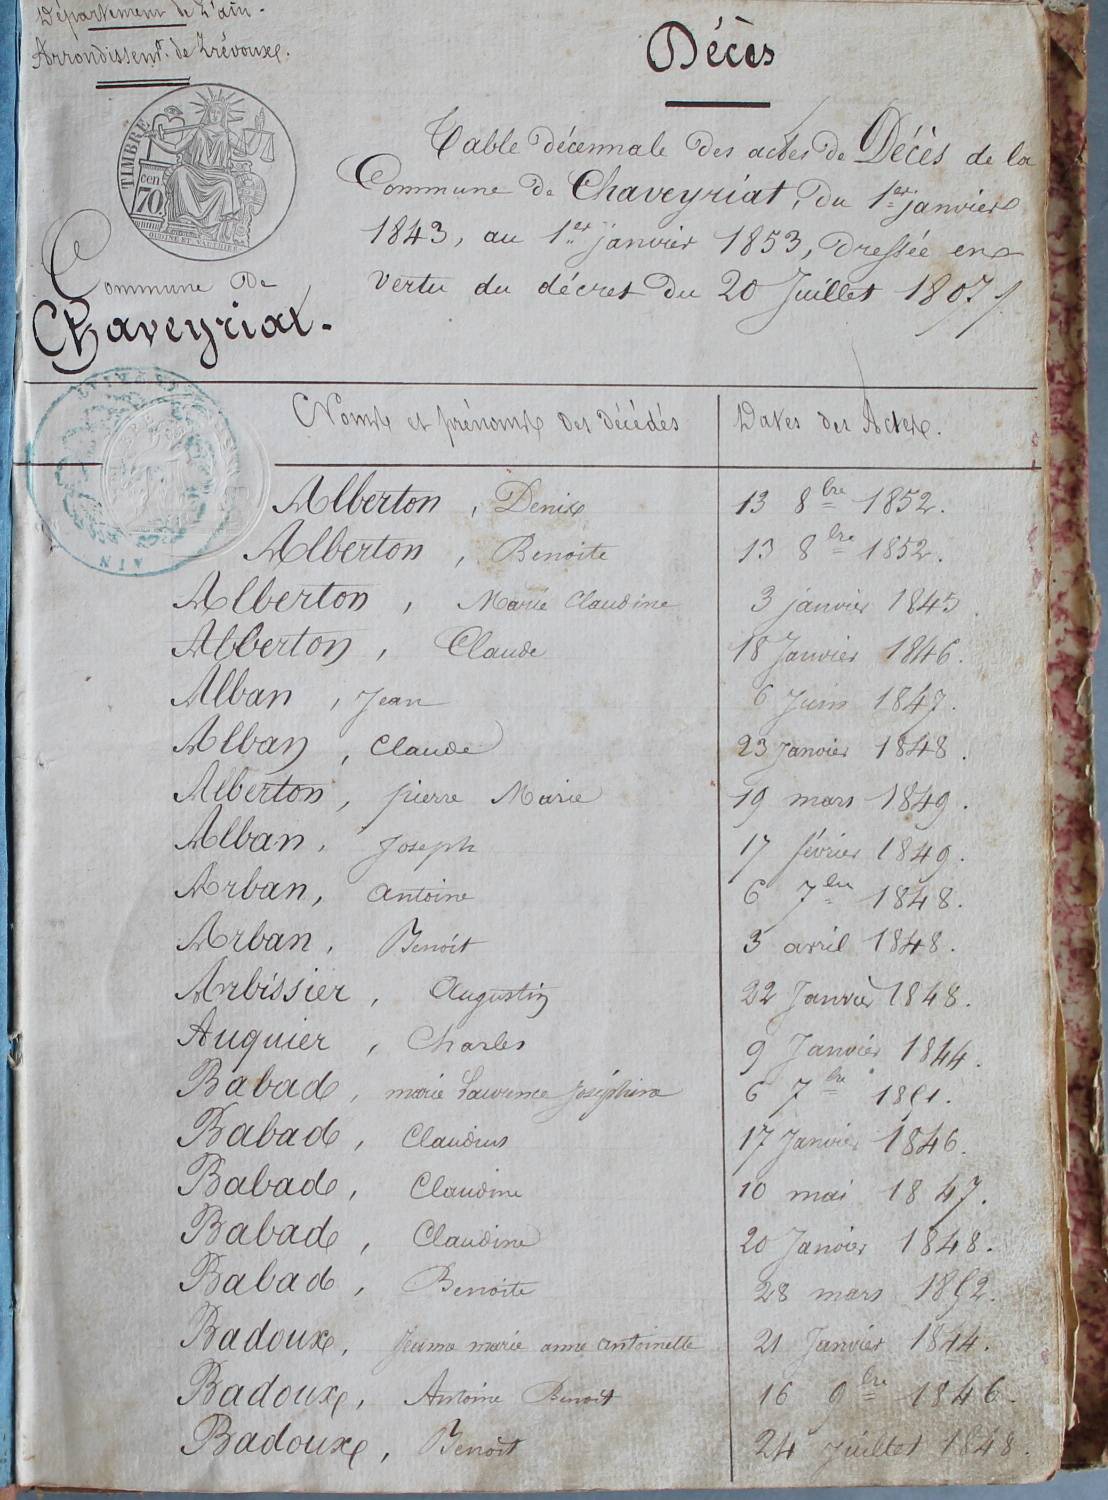 Département de l'ain.
Arrondissemt. de Trévoux.
TIMBRE
cen
70
OUDINÉ ET
Commune De
Chaveyriat.
Décès
Table décennale des actes de Décès de la
Commune de Chaveyriat, du 1er janvier
1843, au 1er janvier 1853, dressée en
vertu du décret du 20 Juillet 1807
AIN
Noms et prénoms des décédés
Dates des Actes.
Alberton, Denis 13 8bre 1852.
Alberton, Benoite 13 8bre 1852.
Alberton, Marie Claudine 3 janvier 1845.
Alberton, Claude 18 Janvier 1846.
Alban, Jean 6 Juin 1847.
Alban, Claude 23 Janvier 1848.
Alberton, pierre Marie 19 mars 1849.
Alban, Joseph 17 février 1849.
Arban, Antoine 6 7bre 1848.
Arban, Benoit 3 avril 1848.
Arbissier, Augustin 22 Janvier 1848.
Auquier, Charles 9 Janvier 1844.
Babad, marie Laurence Joséphine 6 7bre 1851.
Babad, Claudius 17 Janvier 1846.
Babad, Claudine 10 mai 1847.
Babad, Claudine 20 Janvier 1848.
Babad, Benoite 28 mars 1852.
Badoux, Jeanne marie anne antoinette 21 Janvier 1844.
Badoux, Antoine Benoit 16 9bre 1846.
Badoux, Benoit 24 Juillet 1848.